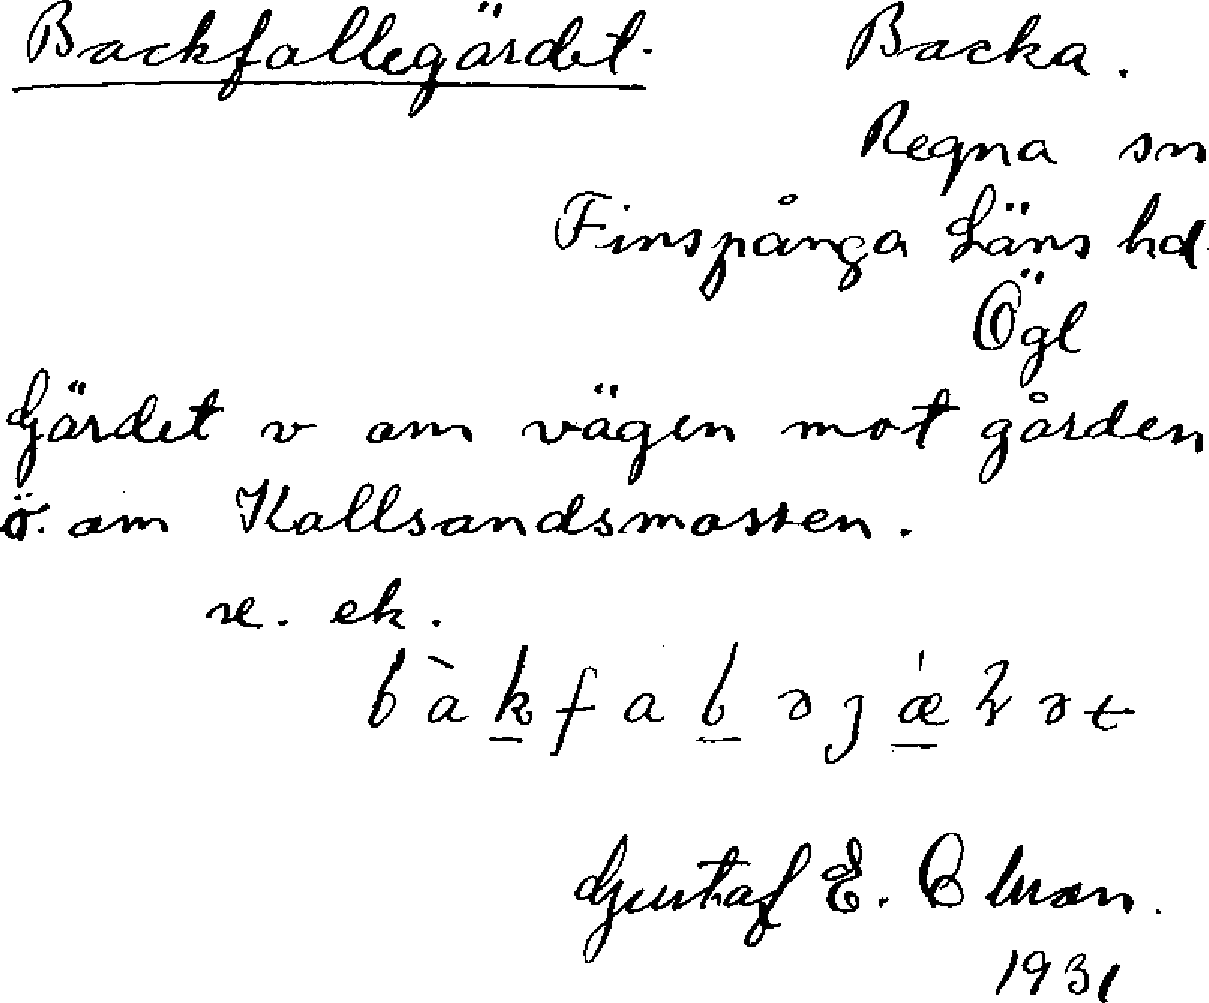 Backfallegärdet. Backa.
Regna sn
Finspånga Läns hd.
Ögl
Gärdet v om vägen mot gården
ö. om Kallsandsmossen.
se. ek.
bàkfaḷəjæ̀ṛət
Gustaf E. Olson.
1931